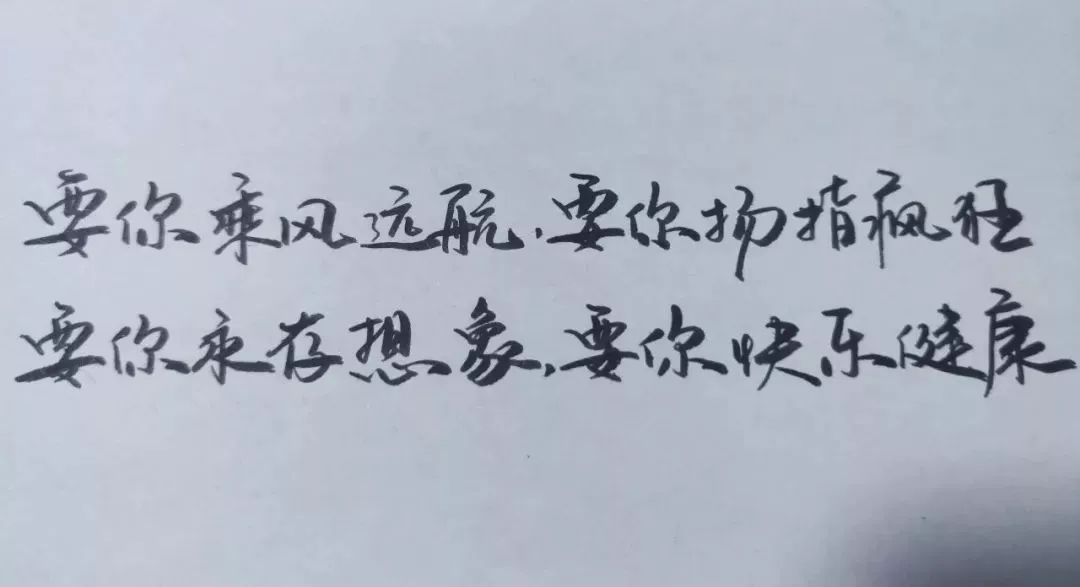 要你乘风远航,要你扬指疯狂
要你永存想象,要你快乐健康